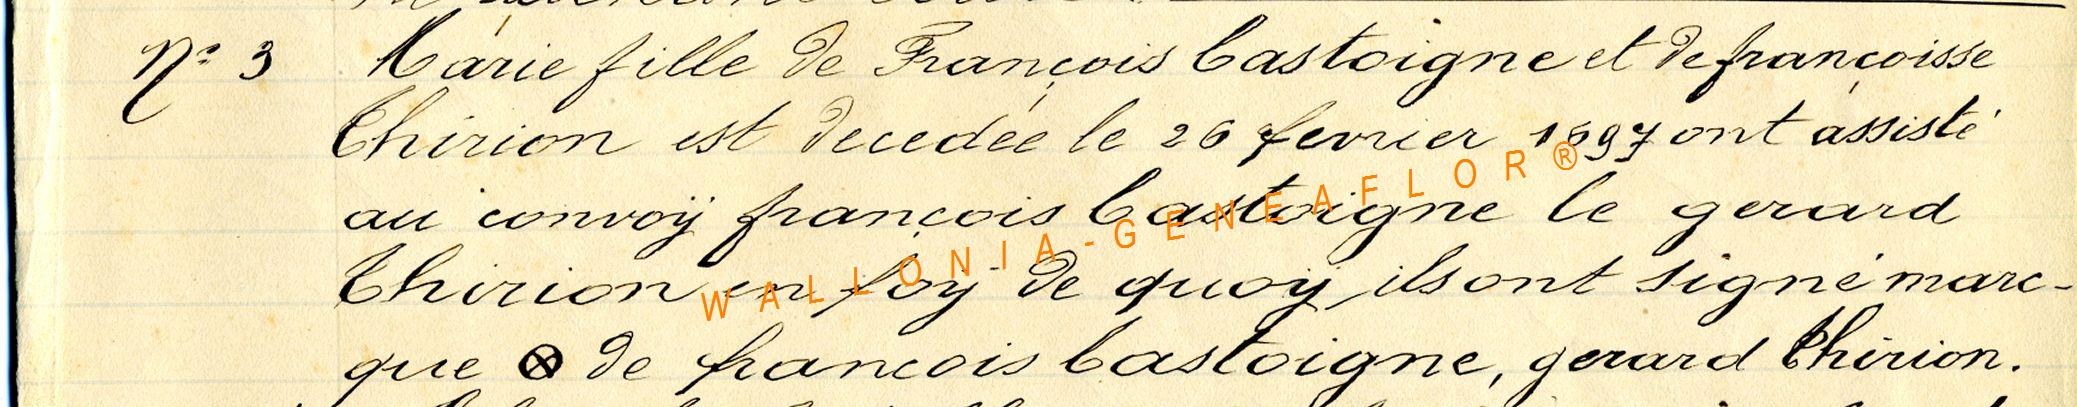 N° 3 Marie fille de François Castoigne et de françoisse
Thirion est decedée le 26 fevrier 1697 ont assisté
au convoÿ françois Castoigne le gerard
Thirion en foÿ de quoÿ ils ont signé marc-
que ⊗ de francois Castoigne, gerard Thirion.
WALLONIA-GENEAFLOR®